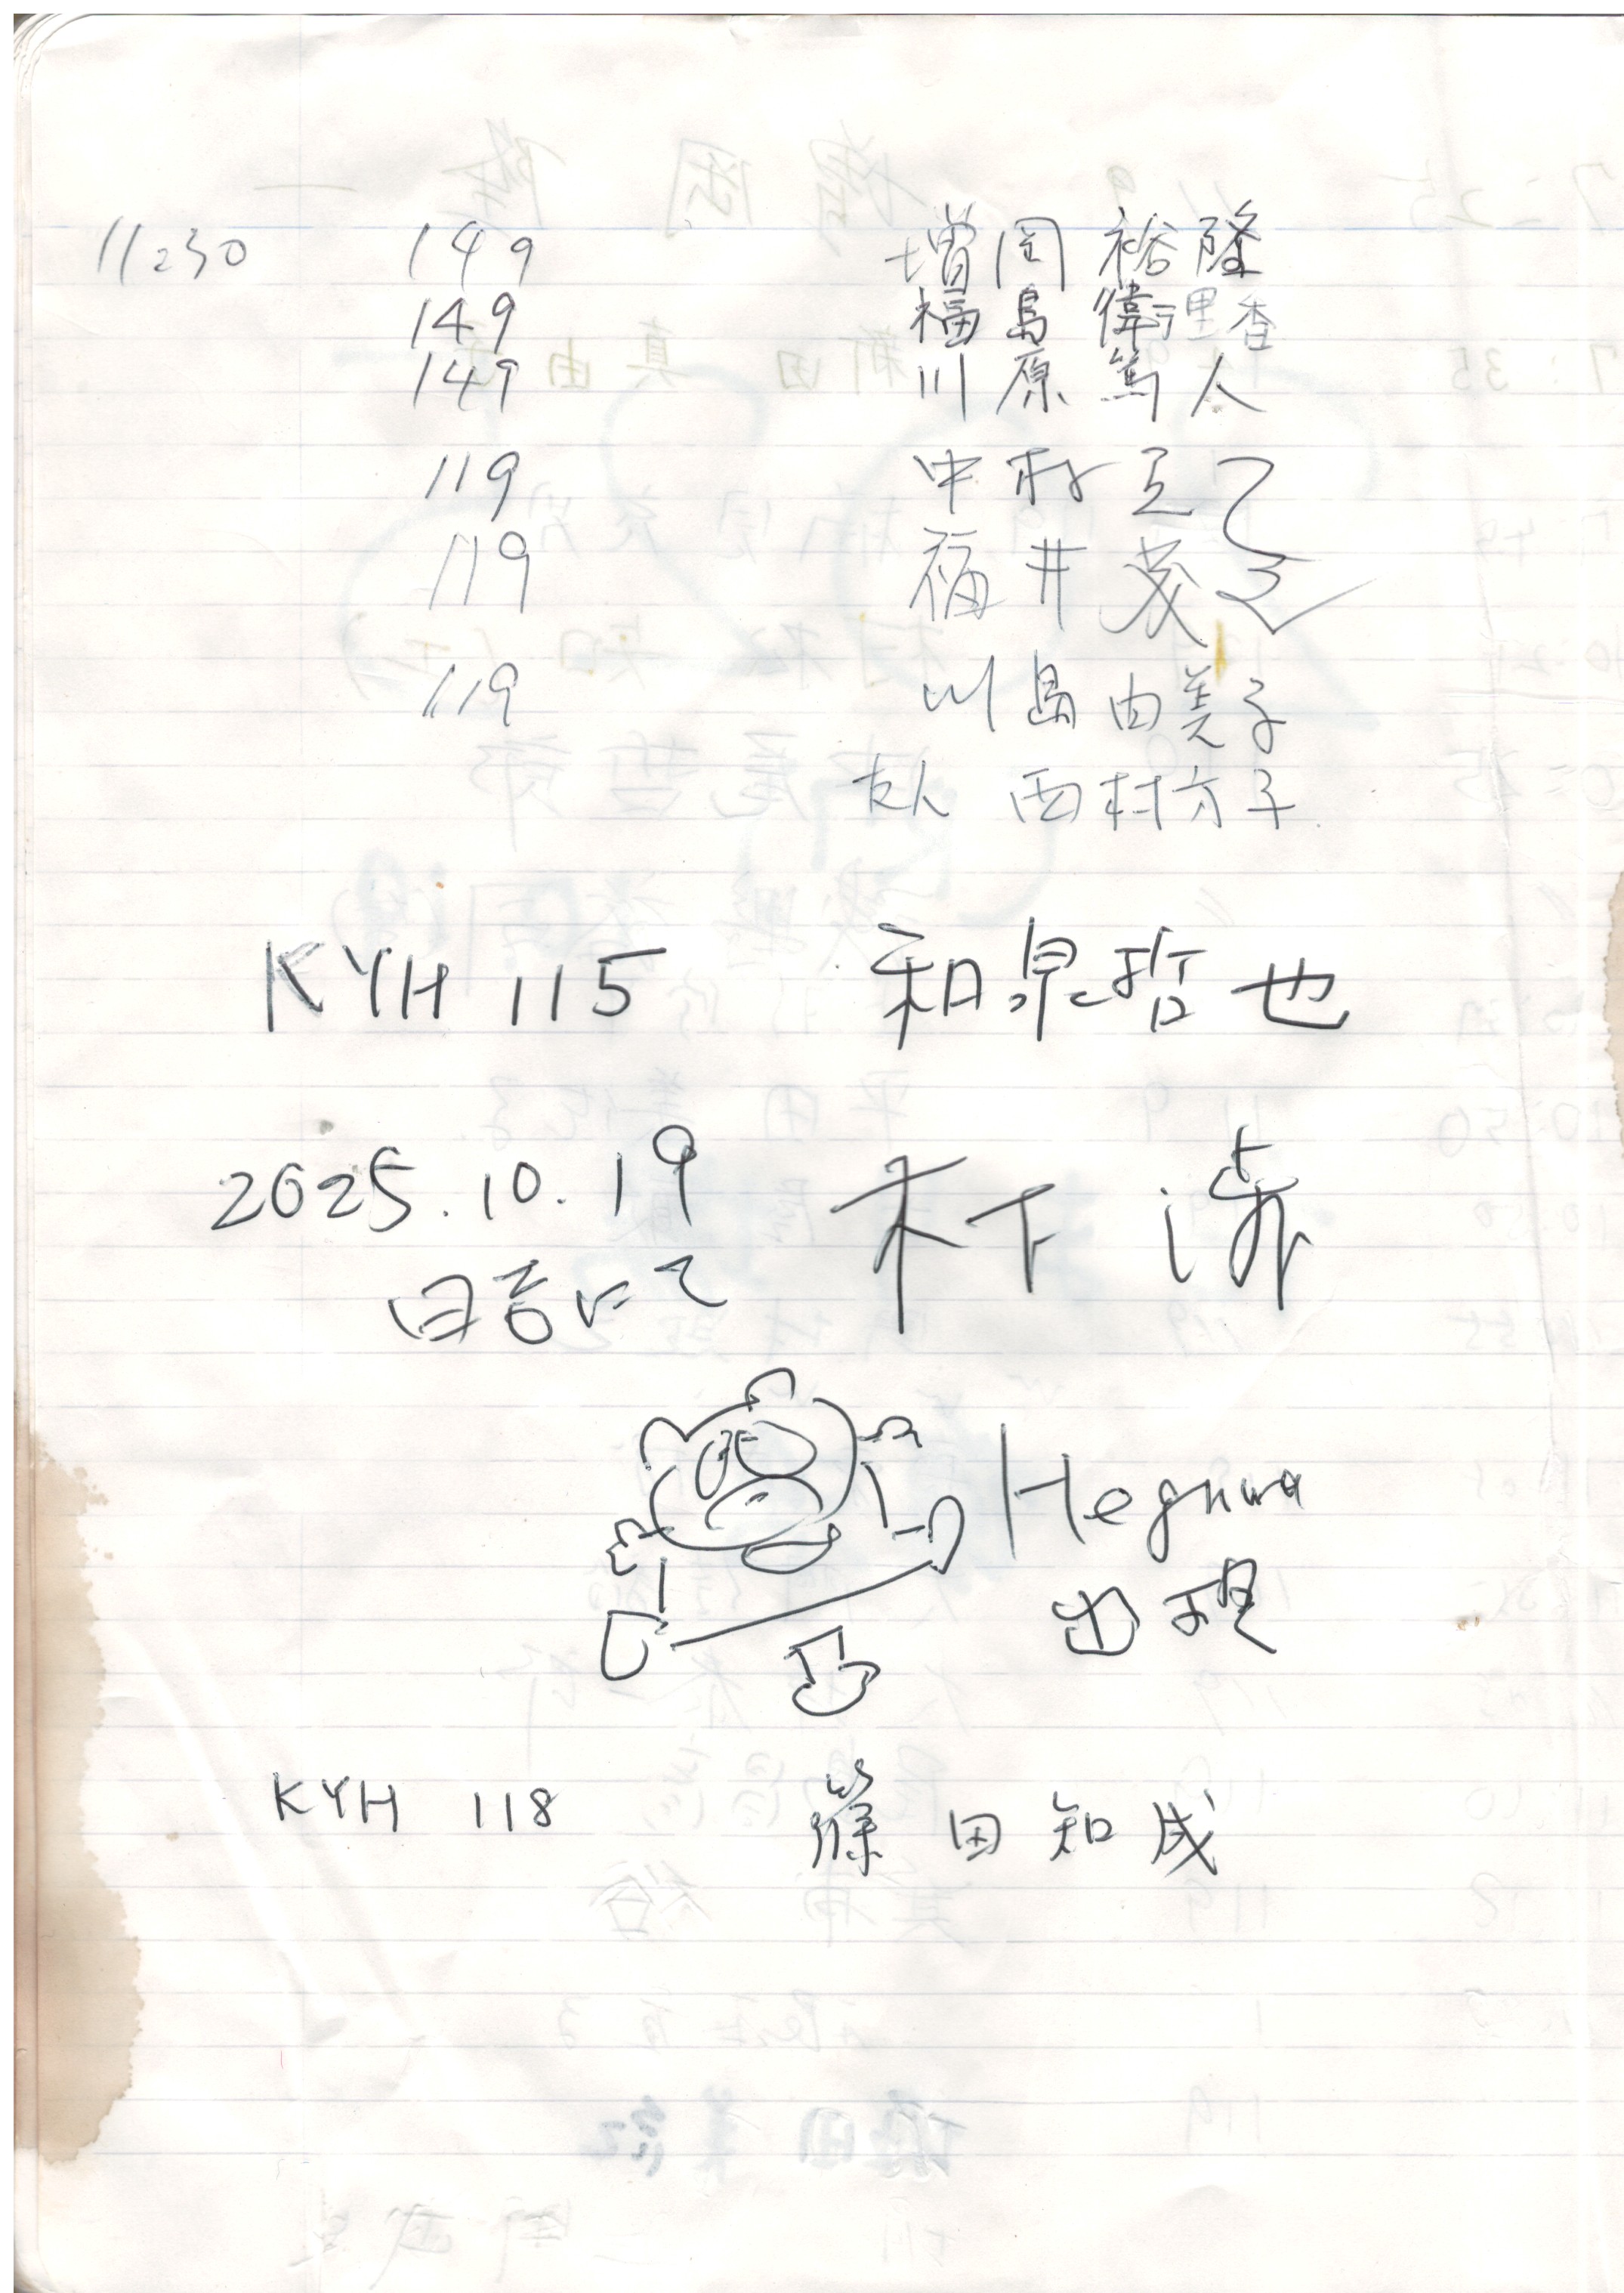 11:30 149 増岡 裕隆
149 福島 衛理香
149 川原 篤人
119 中村
119 福井 茂
119 川島 由美子
友人 西村方子
KYH 115 和泉哲也
2025.10.19 木下 湧
日吉にて
Heguwa
出現
KYH 118 篠田知成